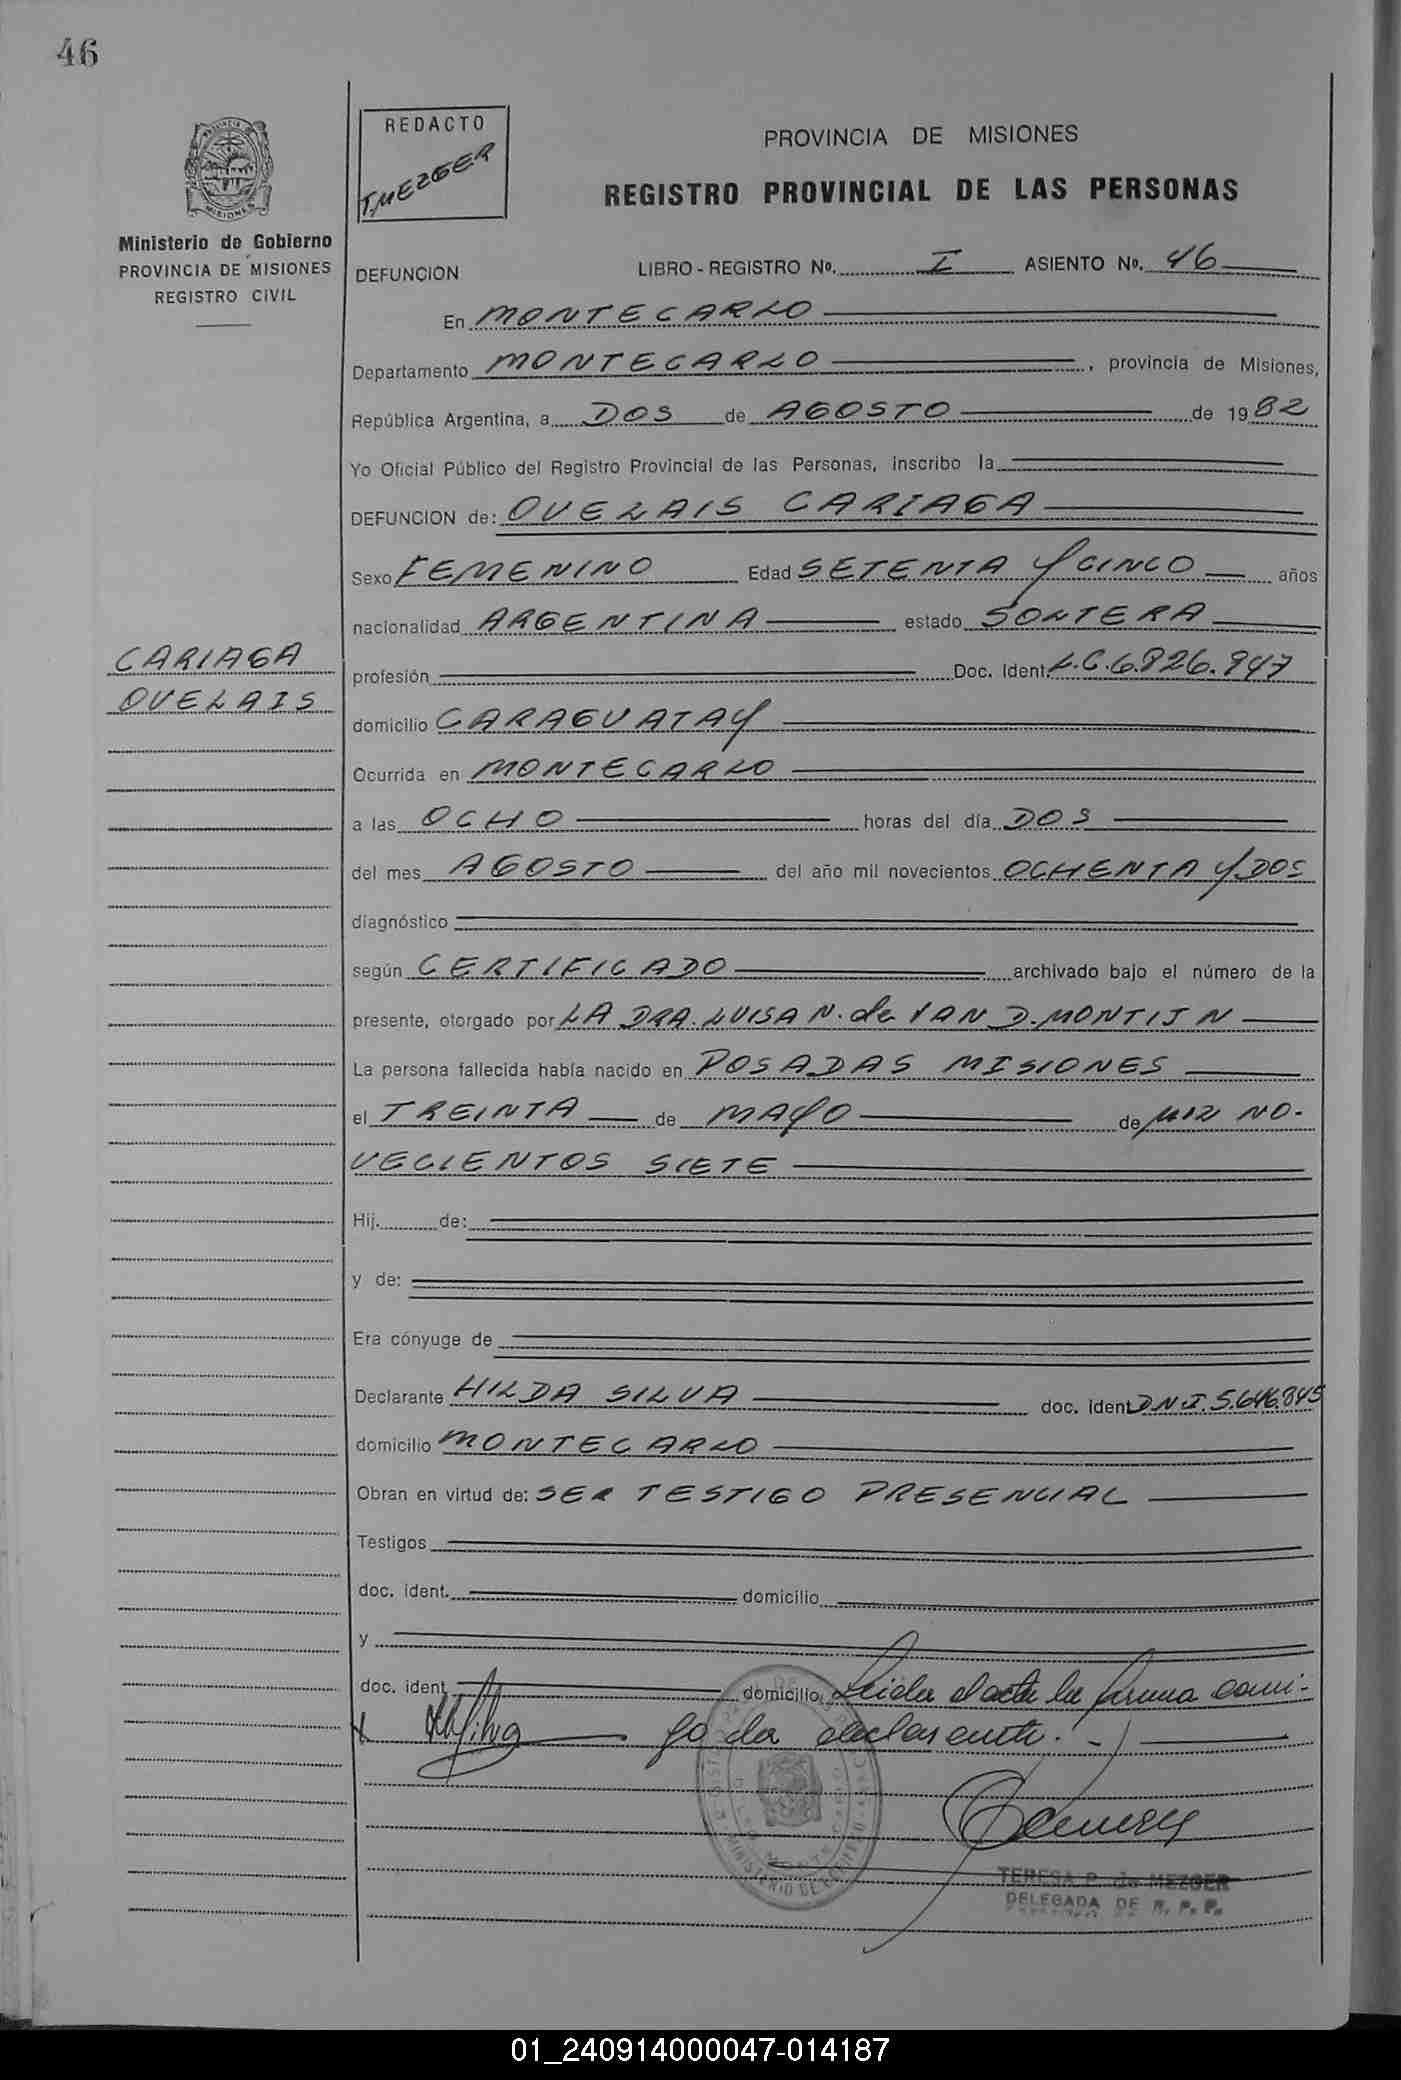 46
REDACTO
T. MEZGER
PROVINCIA DE MISIONES
REGISTRO PROVINCIAL DE LAS PERSONAS
Ministerio de Gobierno
PROVINCIA DE MISIONES
REGISTRO CIVIL
DEFUNCION LIBRO - REGISTRO Nº. I ASIENTO Nº. 46
En MONTECARLO
Departamento MONTECARLO, provincia de Misiones,
República Argentina, a DOS de AGOSTO de 1982
Yo Oficial Público del Registro Provincial de las Personas, inscribo la
DEFUNCION de: OVELAIS CARIAGA
Sexo FEMENINO Edad SETENTA Y CINCO años
nacionalidad ARGENTINA estado SOLTERA
CARIAGA
OVELAIS
profesión Doc. Ident. L.C. 6.826.947
domicilio CARAGUATAY
Ocurrida en MONTECARLO
a las OCHO horas del día DOS
del mes AGOSTO del año mil novecientos OCHENTA Y DOS
diagnóstico
según CERTIFICADO archivado bajo el número de la
presente, otorgado por LA DRA. LUISA N. de VAN D. MONTIJN
La persona fallecida había nacido en POSADAS MISIONES
el TREINTA de MAYO de MIL NO-
VECIENTOS SIETE
Hij. de:
y de:
Era cónyuge de
Declarante HILDA SILVA doc. ident D.N.I. 5.646.845
domicilio MONTECARLO
Obran en virtud de: SER TESTIGO PRESENCIAL
Testigos
doc. ident. domicilio
y
doc. ident. domicilio Leida el acta la firma conmi-
x HSilva go la declarante. -
TERESA P. de MEZGER
DELEGADA DE R. P. P.
MINISTERIO DE
01_240914000047-014187